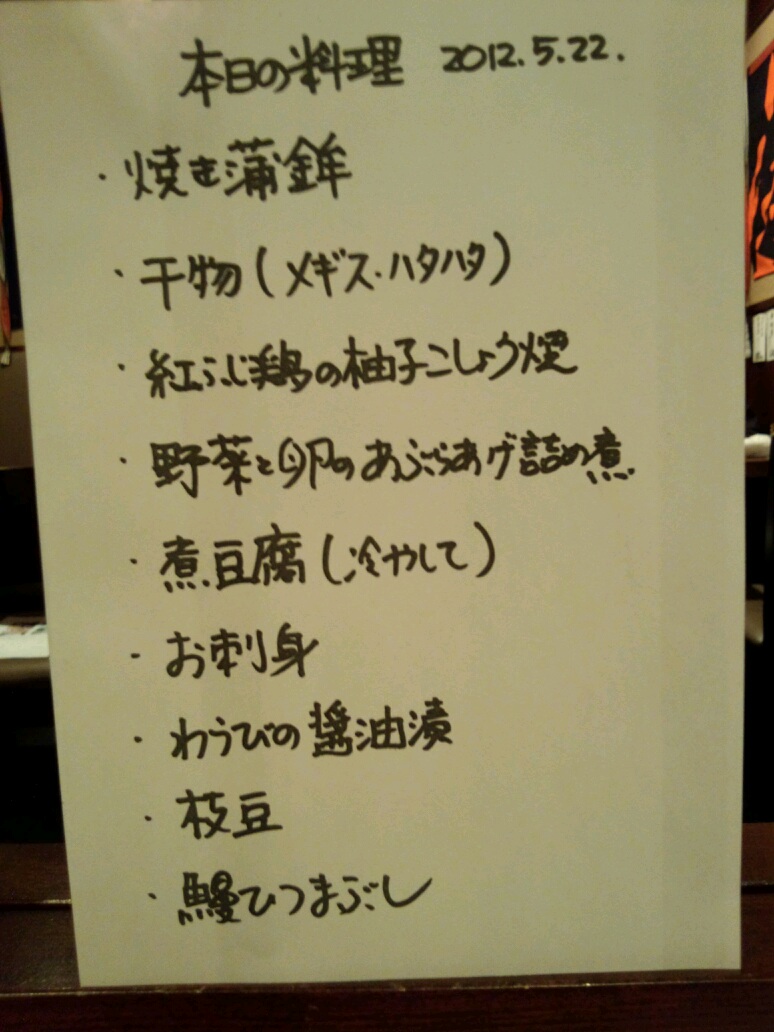 本日の料理 2012.5.22.
・焼き蒲鉾
・干物(メギス・ハタハタ)
・紅ふじ鶏の柚子こしょう煙
・野菜と卵のあぶらあげ詰め煮
・煮豆腐(冷やして)
・お刺身
・わらびの醤油漬
・枝豆
・鰻ひつまぶし